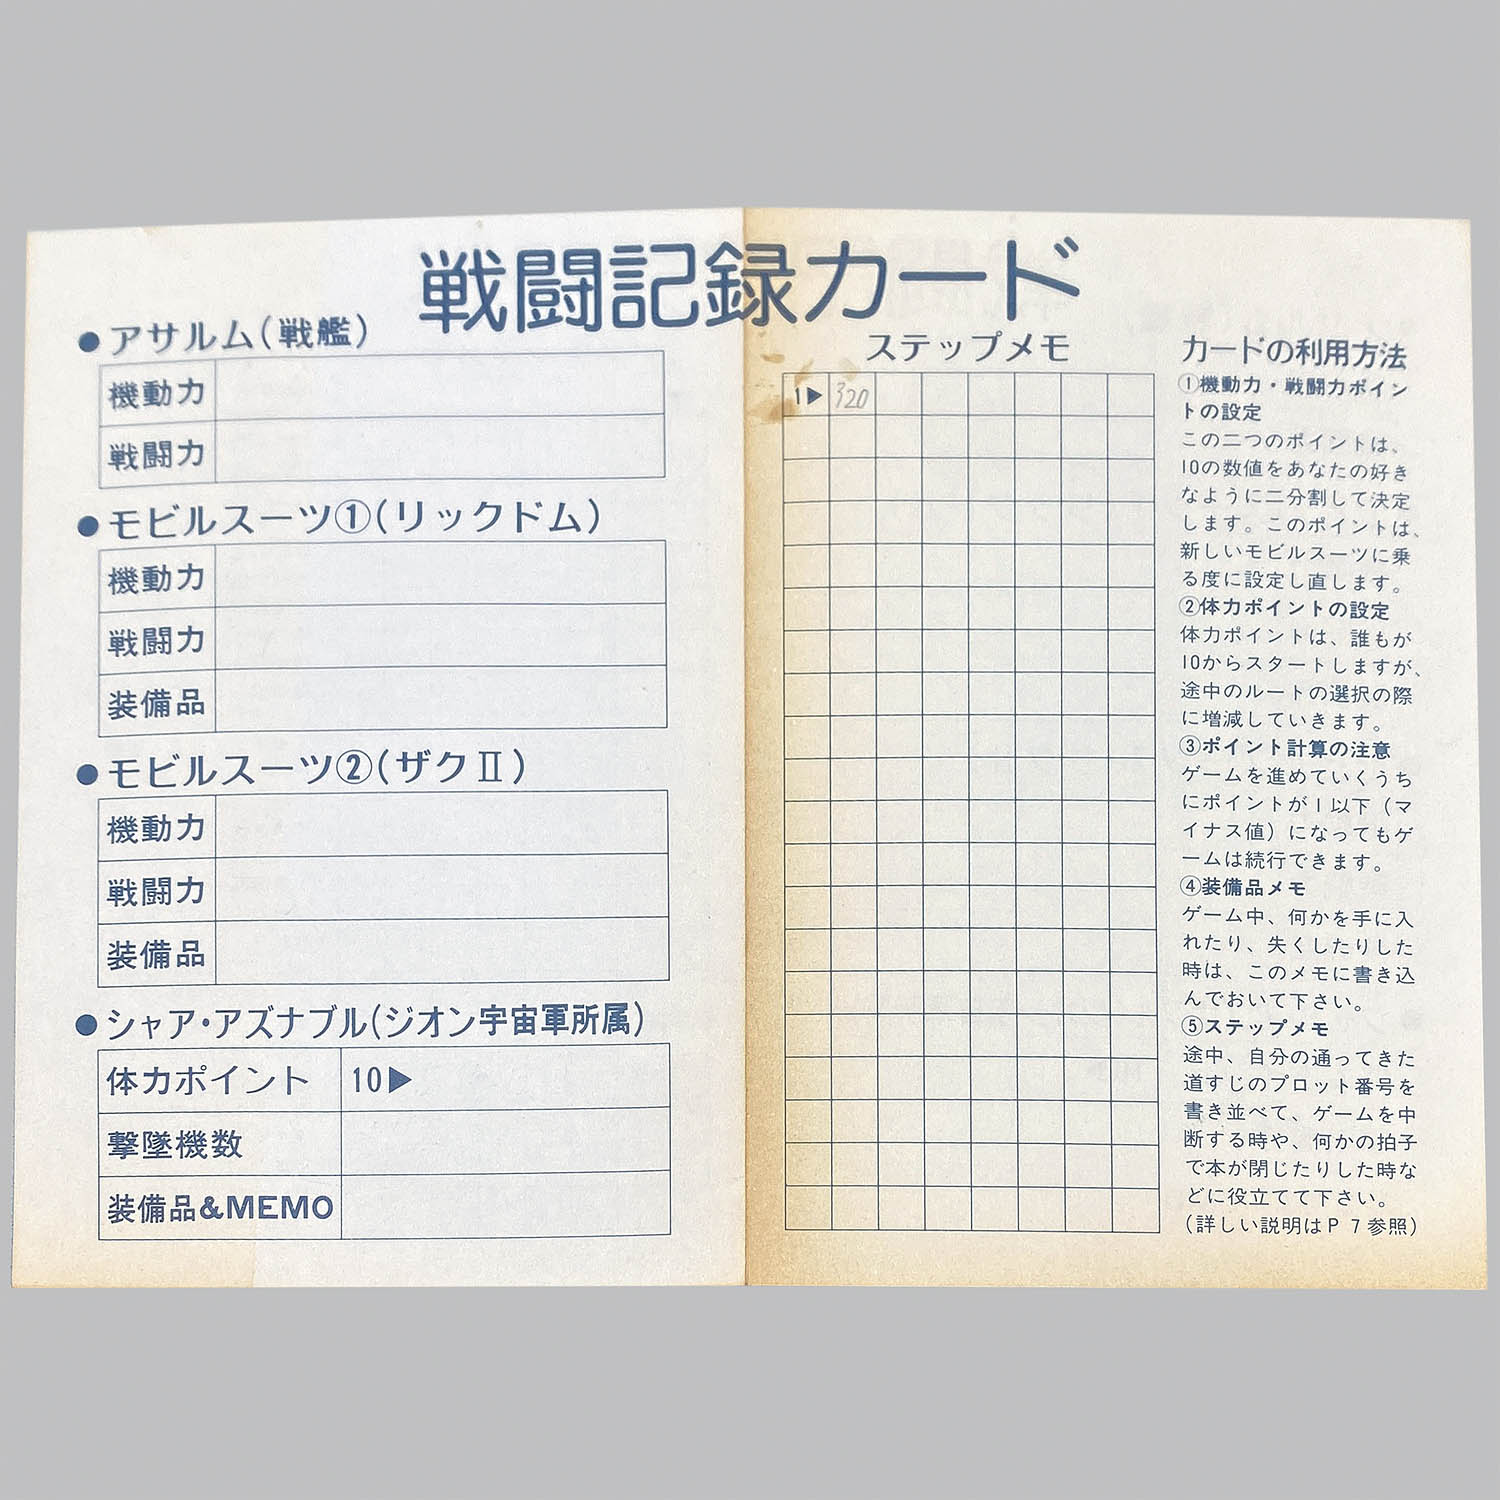 戦闘記録カード
●アサルム(戦艦)
機動力
戦闘力
●モビルスーツ①(リックドム)
機動力
戦闘力
装備品
●モビルスーツ②(ザクⅡ)
機動力
戦闘力
装備品
●シャア・アズナブル(ジオン宇宙軍所属)
体力ポイント 10▶
撃墜機数
装備品&MEMO
ステップメモ
1▶ 320
カードの利用方法
①機動力・戦闘力ポイン
トの設定
この二つのポイントは、
10の数値をあなたの好き
なように二分割して決定
します。このポイントは、
新しいモビルスーツに乗
る度に設定し直します。
②体力ポイントの設定
体力ポイントは、誰もが
10からスタートしますが、
途中のルートの選択の際
に増減していきます。
③ポイント計算の注意
ゲームを進めていくうち
にポイントが1以下（マ
イナス値）になってもゲ
ームは続行できます。
④装備品メモ
ゲーム中、何かを手に入
れたり、失くしたりした
時は、このメモに書き込
んでおいて下さい。
⑤ステップメモ
途中、自分の通ってきた
道すじのプロット番号を
書き並べて、ゲームを中
断する時や、何かの拍子
で本が閉じたりした時な
どに役立てて下さい。
(詳しい説明はP7参照)